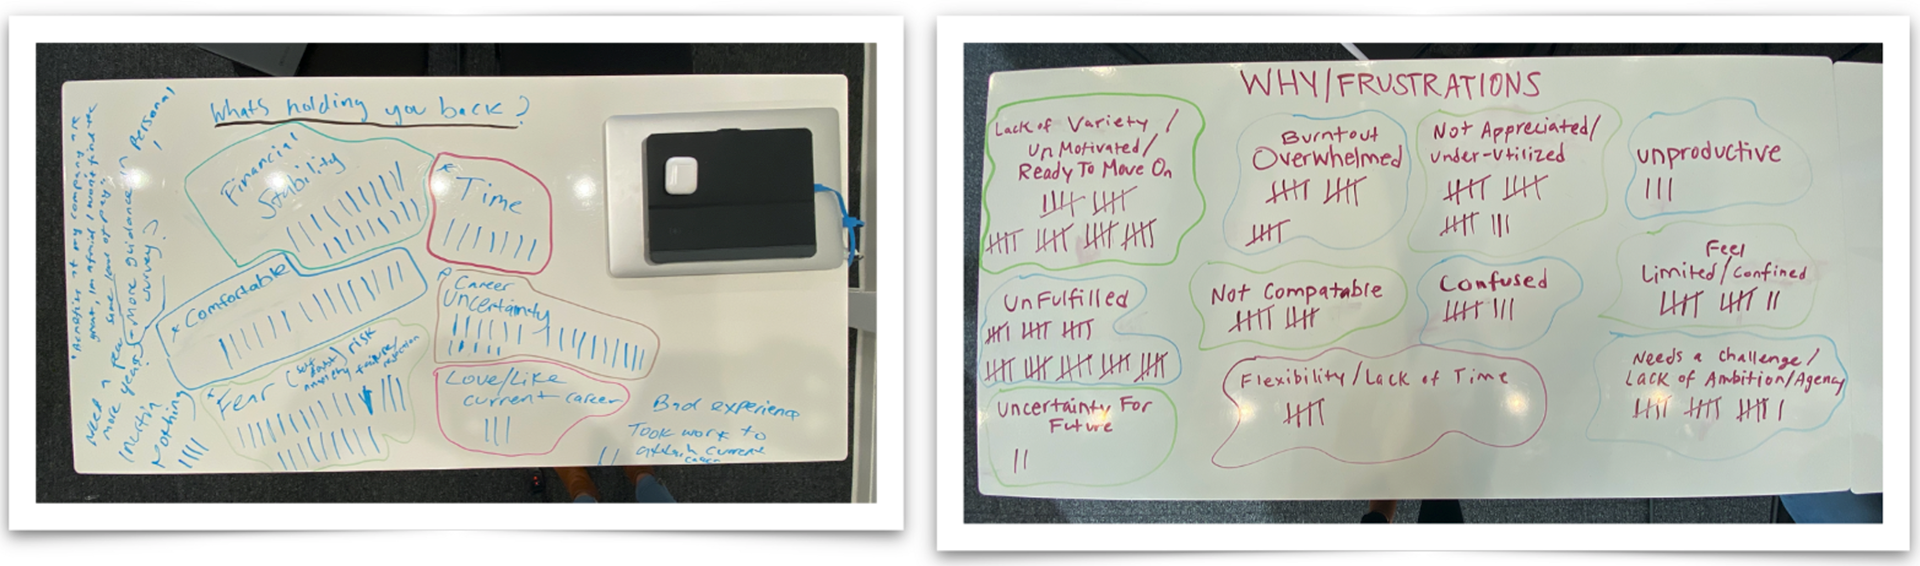 Whats holding you back?
Financial
Stability
* Time
* Comfortable
Career
Uncertainty
* Fear (self doubt) risk
anxiety failure/
rejection
Love/Like
current career
Bad experience
Took work to
attain current
career
Nothing
*Benefits at my company are
great, Im afraid I wont find the
same/level of pay.
Need a few
more years
(More guidance in Personal
survey.)
WHY/FRUSTRATIONS
Lack of Variety /
UnMotivated/
Ready To Move On
Burntout
Overwhelmed
Not Appreciated/
Under-Utilized
unproductive
UnFulfilled
Not Compatable
Confused
Feel
Limited/Confined
Uncertainty For
Future
Flexibility/Lack of Time
Needs a Challenge/
Lack of Ambition/Agency